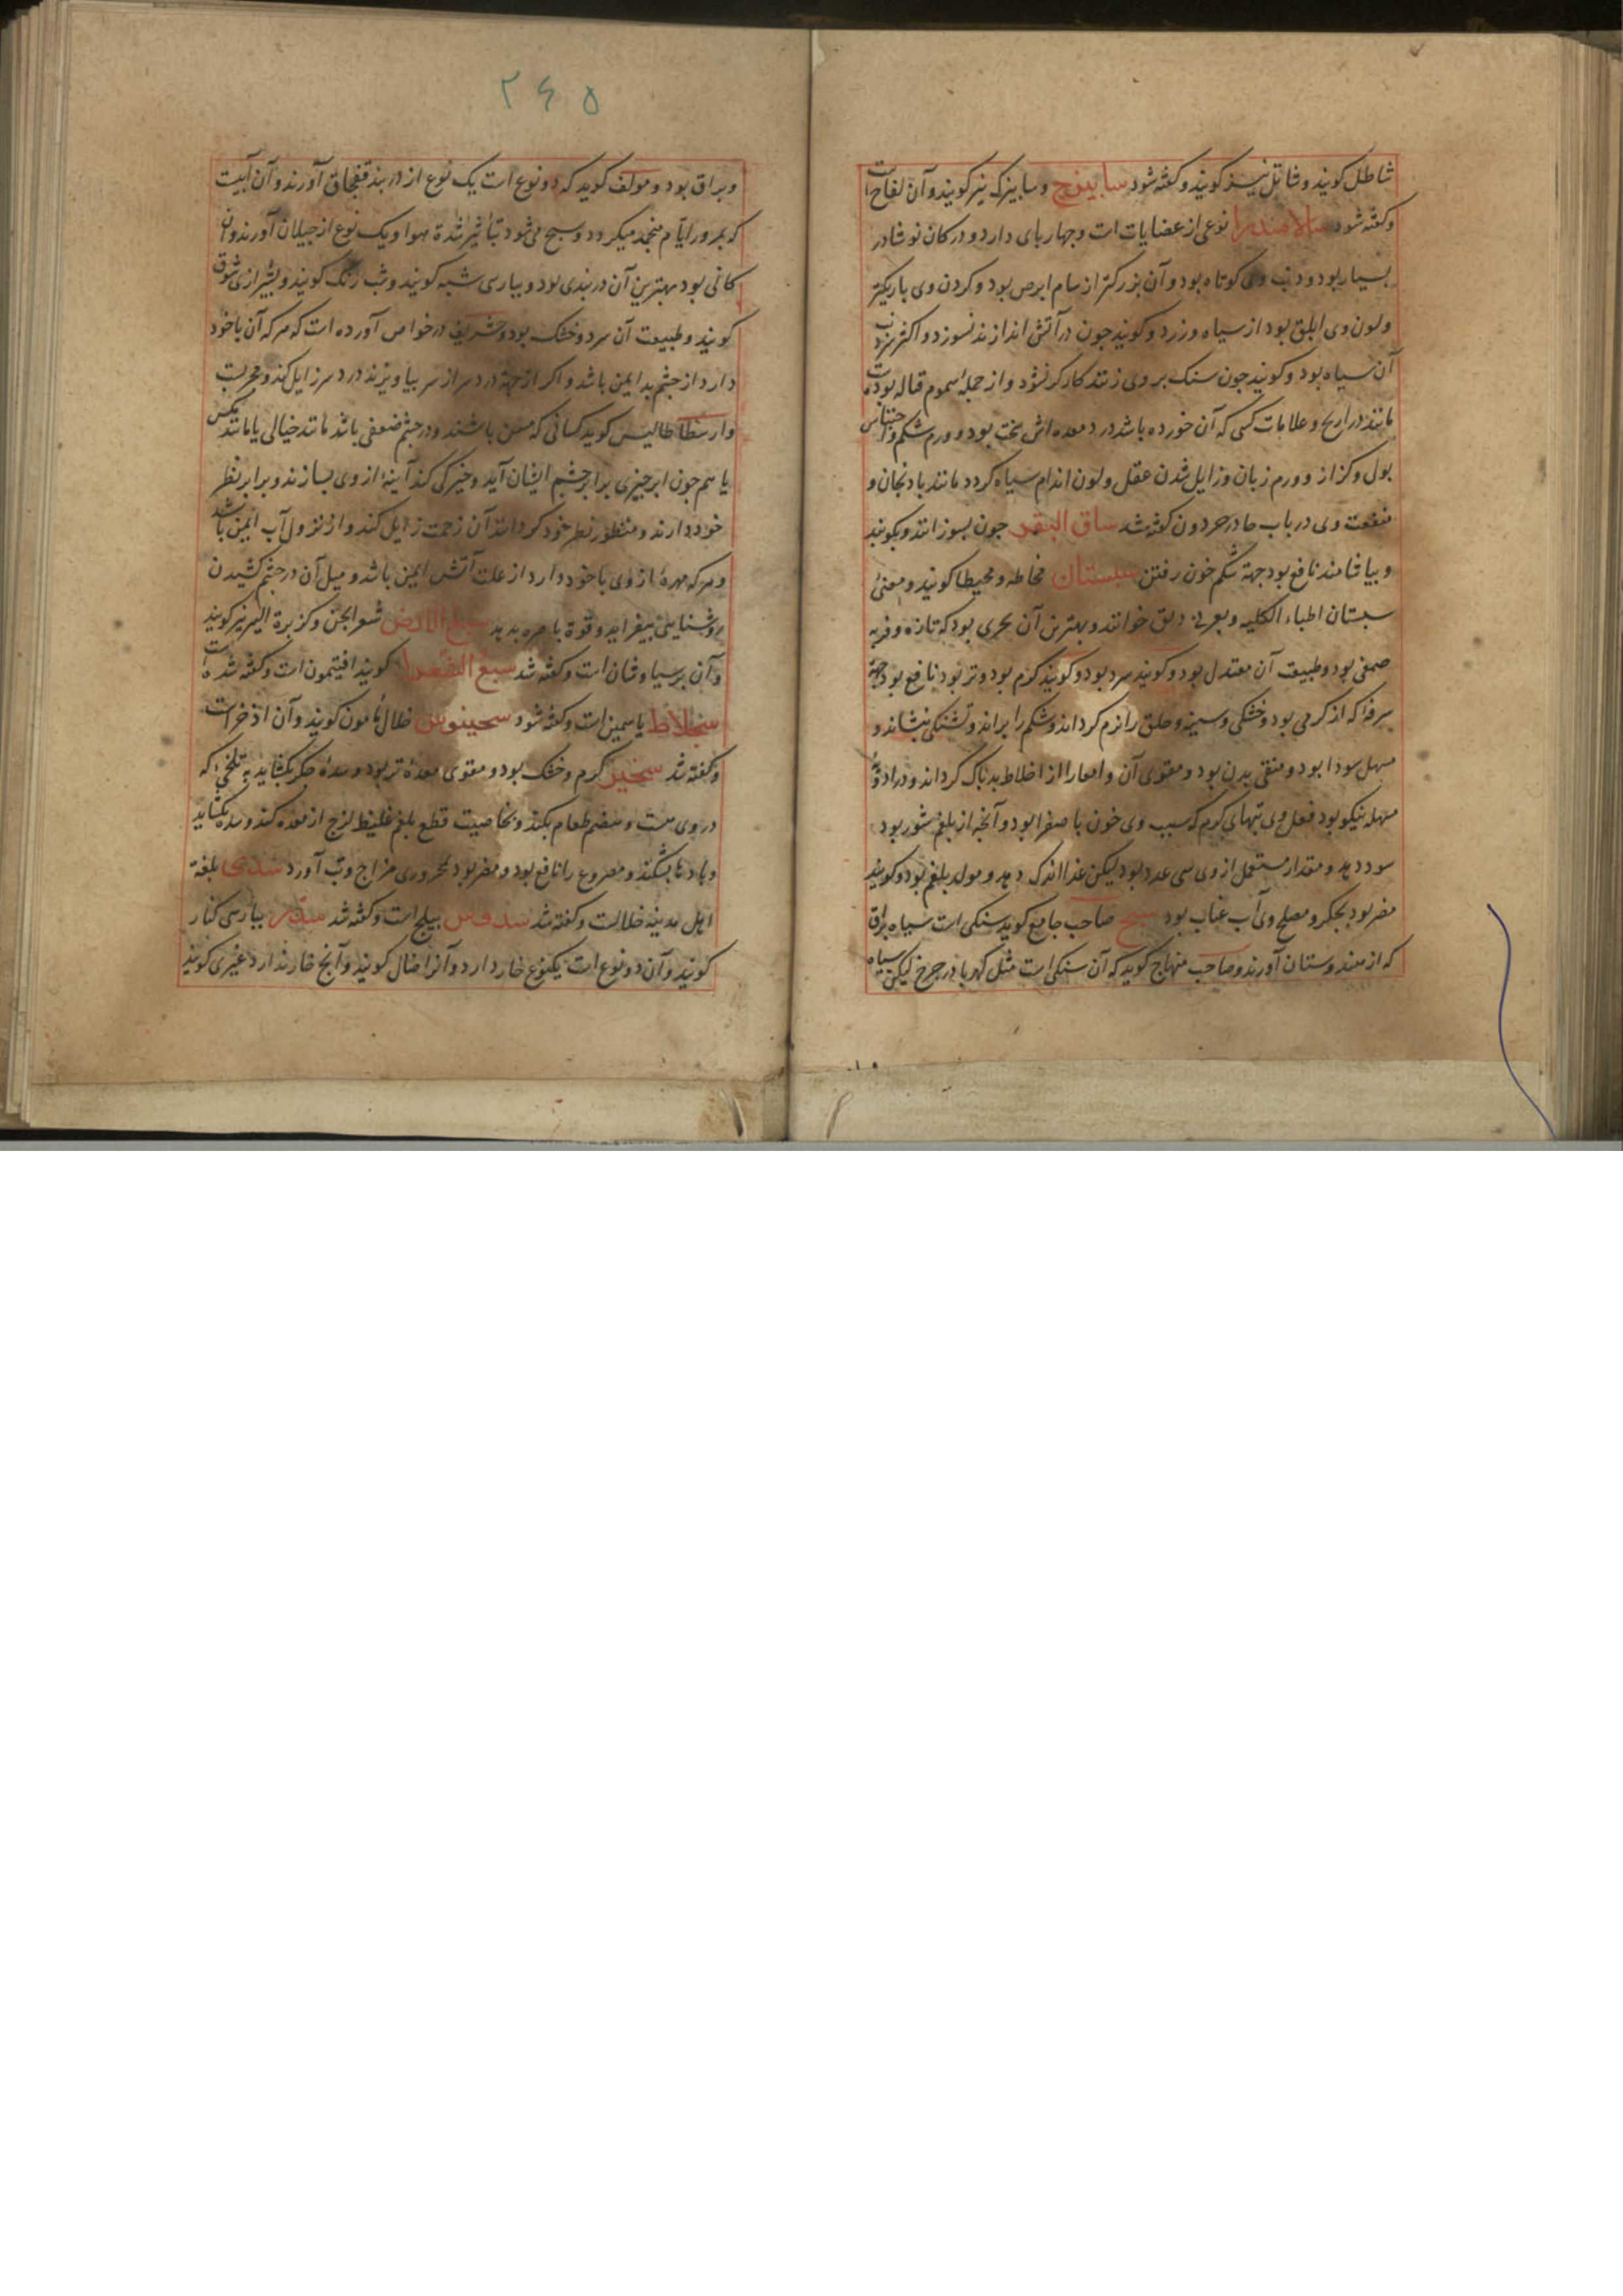 شاطل کویند و شاتل نیز کویند و کفته شود سابیزج و سابیزک نیز کویند و آن لفاح است
و کفته شود سالامندرا نوعی از عضایات است و چهار پای دارد و در کان نوشادر
بسیار بود و دنب وی کوتاه بود و آن بزرکتر از سام ابرص بود و کردن وی باریکتر
و لون وی ابلق بود از سیاه و زرد و کویند جون در آتش اندازند نسوزد و اکثر
آن سیاه بود و کویند جون سنک بر وی زنند کارکر نشود و از جمله سموم قتاله بود
مانند ذراریح و علامات کسی که آن خورده باشد درد معده اش سخت بود و ورم شکم و احتباس
بول و کزاز و ورم زبان و زایل شدن عقل و لون اندام سیاه کردد مانند بادنجان و
منفعت وی در باب حا در حردون کفته شد ساق البقر جون بسوزانند و بکوبند
و بیاشامند نافع بود جهة شکم خون رفتن سبستان مخاطه و مخیطا کویند و معنی
سبستان اطباء الکلبه و بعربی دبق خوانند و بهترین آن بحری بود که تازه و فربه
صمغی بود و طبیعت آن معتدل بود و کویند سرد بود و کویند کرم بود و تر بود نافع بود جهة
سرفه که از کرمی بود و خشکی و سینه و حلق را نرم کرداند و شکم را براند و تشنکی بنشاند و
مسهل سودا بود و منقی بدن بود و مقوی آن و امعا را از اخلاط بد پاک کرداند و در ادویه
مسهله نیکو بود فعل وی تبهای کرم که سبب وی خون با صفرا بود و آنچه از بلغم شور بود
سود دهد و مقدار مستعمل از وی سی عدد بود لیکن غذا اندک دهد و مولد بلغم بود و کویند
مضر بود بجکر و مصلح وی آب عناب بود سبج صاحب جامع کوید سنکی است سیاه براق
که از هندوستان آورند و صاحب منهاج کوید که آن سنکی است مثل کهربا در جرخ لیکن سیاه
۲۶۵
و براق بود و مولف کوید که دو نوع است یک نوع از دربند قفجاق آورند و آن آبیست
که بمرور ایام منجمد میکردد و سبج می شود بتاثیر شدة هوا و یک نوع از جیلان آورند و آن
کانی بود بهترین آن دربندی بود و بپارسی شبه کویند و شب رنک کویند و بشیرازی شوق
کویند و طبیعت آن سرد و خشک بود و شریف در خواص آورده است که هر که آن با خود
دارد از جشم بد ایمن باشد و اکر از جهة درد سر از سر بیاویزند درد سر زایل کند و مجربست
و ارسطاطالیس کوید کسانی که مسن باشند و در جشم ضعفی باشد مانند خیالی یا مانند مکس
یا هم جون ابر جیزی برابر جشم ایشان آید و خیرکی کند آینه از وی بسازند و برابر نظر
خود دارند و منظور نظر خود کردانند آن زحمت زایل کند و از نزول آب ایمن باشد
و هر که مهره از وی با خود دارد از علت آتش ایمن باشد و میل آن در جشم کشیدن
روشنایی بیفزاید و قوة باصره بدهد سبع الارض شعر الجن و کزبرة البیر نیز کویند
و آن پرسیاوشان است و کفته شد سبع القعدا کویند افتیمون است و کفته شده است
سجلاط یاسمین است و کفته شود سحینوس خلال مامون کویند و آن اذخر است
و کفته شد سخبر کرم و خشک بود و مقوی معده تر بود و سده جکر بکشاید به تلخی که
در وی هست و هضم طعام بکند و بخاصیت قطع بلغم غلیظ لزج از معده کند و سده بکشاید
و بادها بشکند و مصروع را نافع بود و مضر بود محروری مزاج و تب آورد سدی بلغة
اهل مدینه خلالست و کفته شد سدوس نیلج است و کفته شد سدر بپارسی کنار
کویند و آن دو نوع است یکنوع خار دارد و آنرا ضال کویند و آنچ خار ندارد غبری کویند